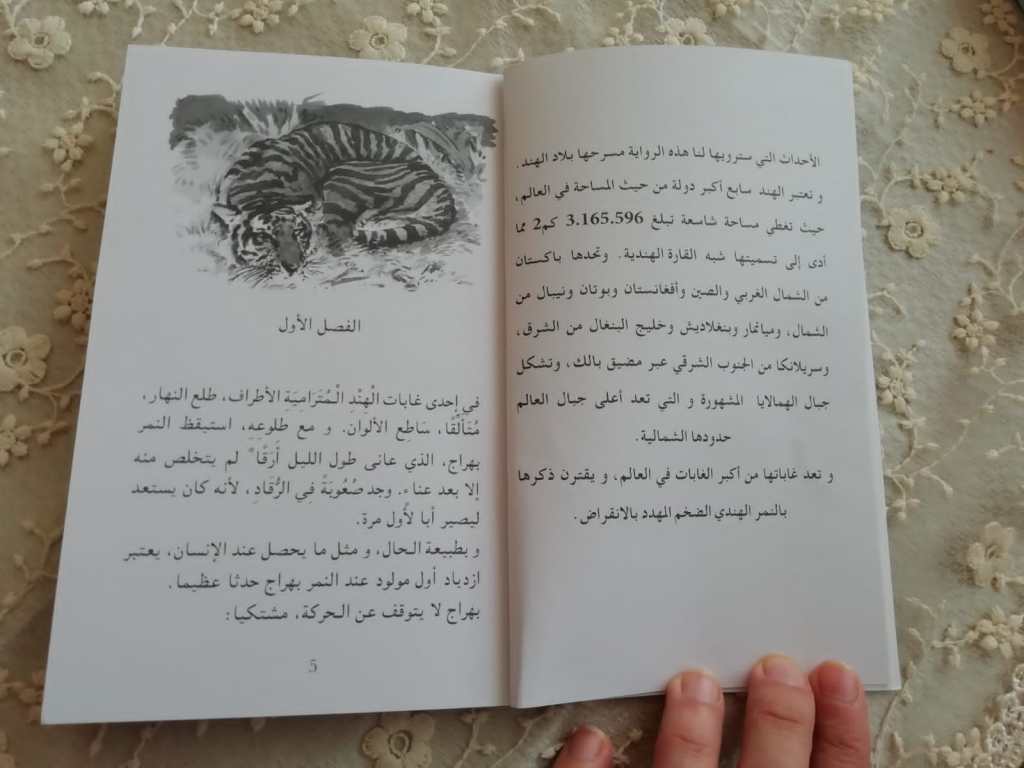 الأحداث التي سترويها لنا هذه الرواية مسرحها بلاد الهند.
و تعتبر الهند سابع أكبر دولة من حيث المساحة في العالم،
حيث تغطي مساحة شاسعة تبلغ 3.165.596 كم2 مما
أدى إلى تسميتها شبه القارة الهندية. وتحدها باكستان
من الشمال الغربي والصين وأفغانستان وبوتان ونيبال من
الشمال، وميانمار وبنغلاديش وخليج البنغال من الشرق،
وسريلانكا من الجنوب الشرقي عبر مضيق بالك، وتشكل
جبال الهمالايا المشهورة و التي تعد أعلى جبال العالم
حدودها الشمالية.
و تعد غاباتها من أكبر الغابات في العالم، و يقترن ذكرها
بالنمر الهندي الضخم المهدد بالانقراض.
الفصل الأول
في إحدى غابات الْهِنْدِ الْمُتَرَامِيَةِ الأطراف، طلع النهار،
مُتَأَلِّقًا، سَاطِع الألوان. و مع طلوعِهِ، استيقظ النمر
بهراج، الذي عانى طول الليل أَرَقًا لم يتخلص منه
إلا بعد عناء. وجد صُعُوبَةً فِي الرُّقَادِ، لأنه كان يستعد
ليصير أبا لأول مرة.
و بطبيعة الحال، و مثل ما يحصل عند الإنسان، يعتبر
ازدياد أول مولود عند النمر بهراج حدثا عظيما.
بهراج لا يتوقف عن الحركة، مشتكيا:
5